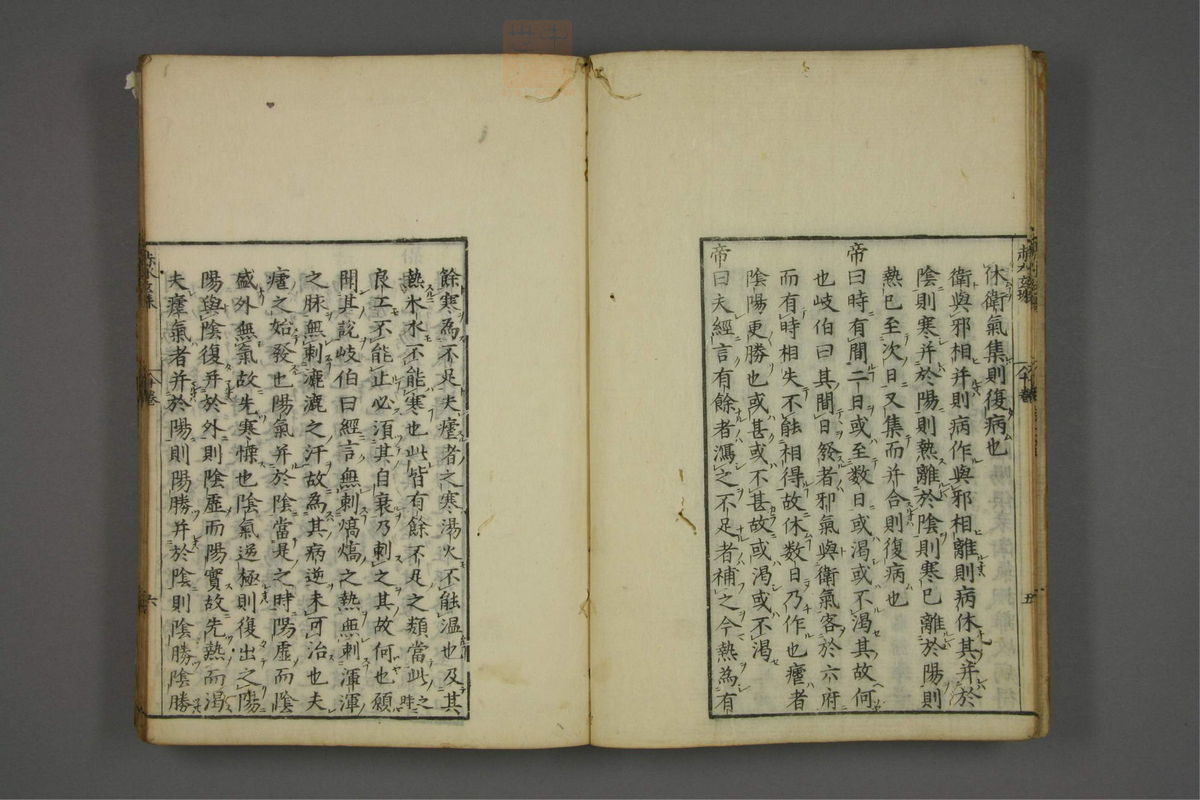 休衛氣集則復病也
衛與邪相并則病作與邪相離則病休其并於
陰則寒并於陽則熱離於陰則寒已離於陽則
熱已至次日又集而并合則復病也
帝曰時有間二日或至数日或渴或不渴其故何
也岐伯曰其間日發者邪氣與衛氣客於六府
而有時相失不能相得故休数日乃作也瘧者
陰陽更勝也或甚或不甚故或渴或不渴
帝曰夫經言有餘者瀉之不足者補之今熱為有
餘寒為不足夫瘧者之寒湯火不能温也及其
熱氷水不能寒也此皆有餘不足之類當此之時
良工不能止必須其自衰乃刺之其故何也願
聞其說岐伯曰經言無刺熇熇之熱無刺渾渾
之脉無刺漉漉之汗故為其病逆未可治也夫
瘧之始發也陽氣并於陰當是之時陽虛而陰
盛外無氣故先寒慄也陰氣逆極則復出之陽
陽與陰復并於外則陰虛而陽實故先熱而渴
夫瘧氣者并於陽則陽勝并於陰則陰勝陰勝